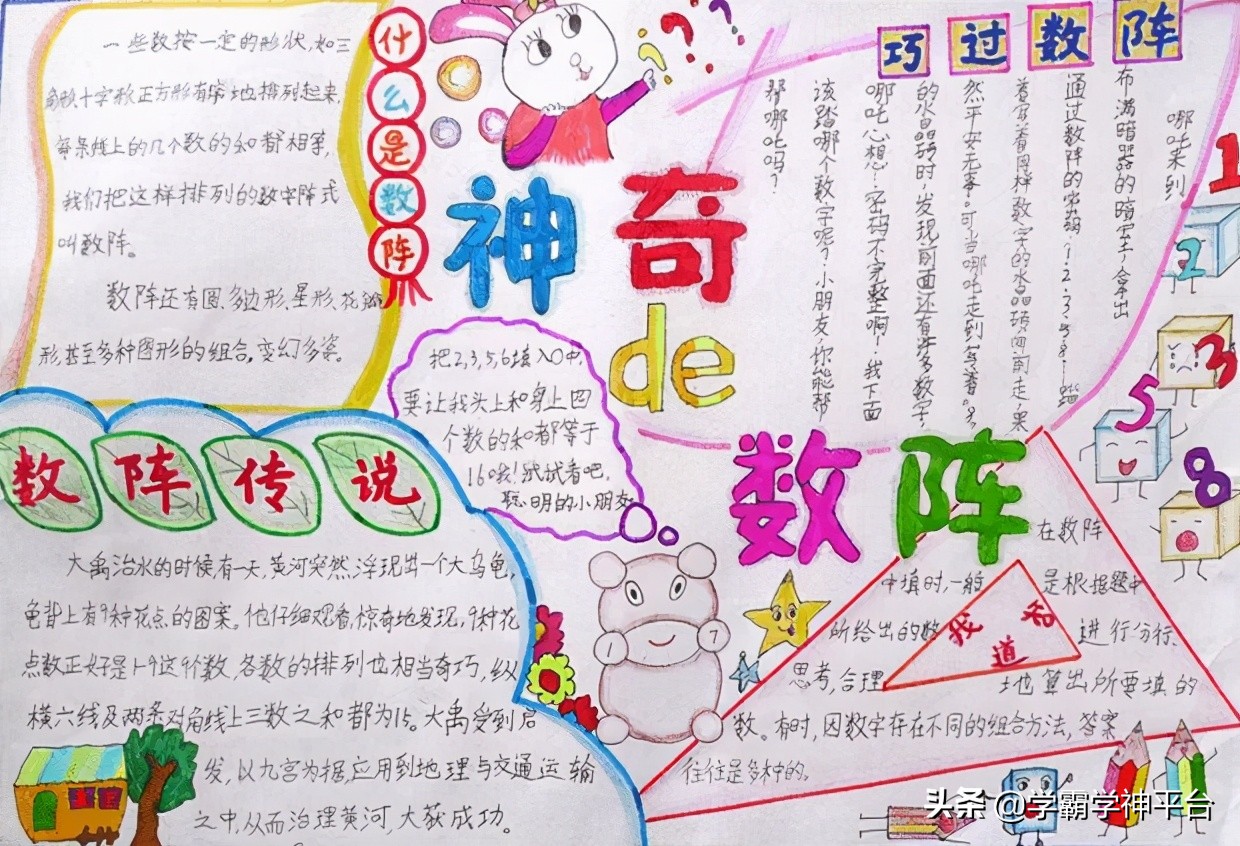 什么是数阵
一些数按一定的形状,如三
角形十字形正方形有序地排列起来,
每条线上的几个数的和都相等,
我们把这样排列的数字阵式
叫数阵。
数阵还有圆、多边形、星形、花瓣
形,甚至多种图形的组合,变幻多姿。
神奇
de
数阵
巧过数阵
哪吒来到
布满暗器的暗室,拿出
通过数阵的密码:1·2·3·5·8……踏
着写着这种数字的水晶砖向前走,果
然平安无事。可当哪吒走到写着8
的水晶砖时,发现前面还有许多数字,
哪吒心想:密码不完整啊!我下面
该踏哪个数字呢?小朋友,你能帮
帮哪吒吗?
1
2
3
5
8
把2,3,5,6填入○中,
要让我头上和身上四
个数的和都等于
16哦!试试看吧,
聪明的小朋友
1
7
数阵传说
大禹治水的时候,有一天,黄河突然浮现出一个大乌龟,
龟背上有9种花点的图案。他仔细观看,惊奇地发现,9种花
点数正好是1-9这9个数,各数的排列也相当奇巧,纵
横六线及两条对角线上三数之和都为15。大禹受到启
发,以九宫为据,应用到地理与交通运输
之中,从而治理黄河,大获成功。
我知道
在数阵
中填时,一般是根据题中
所给出的数进行分析、
思考,合理地算出所要填的
数。有时,因数字存在不同的组合方法,答案
往往是多种的。
头条 @学霸学神平台